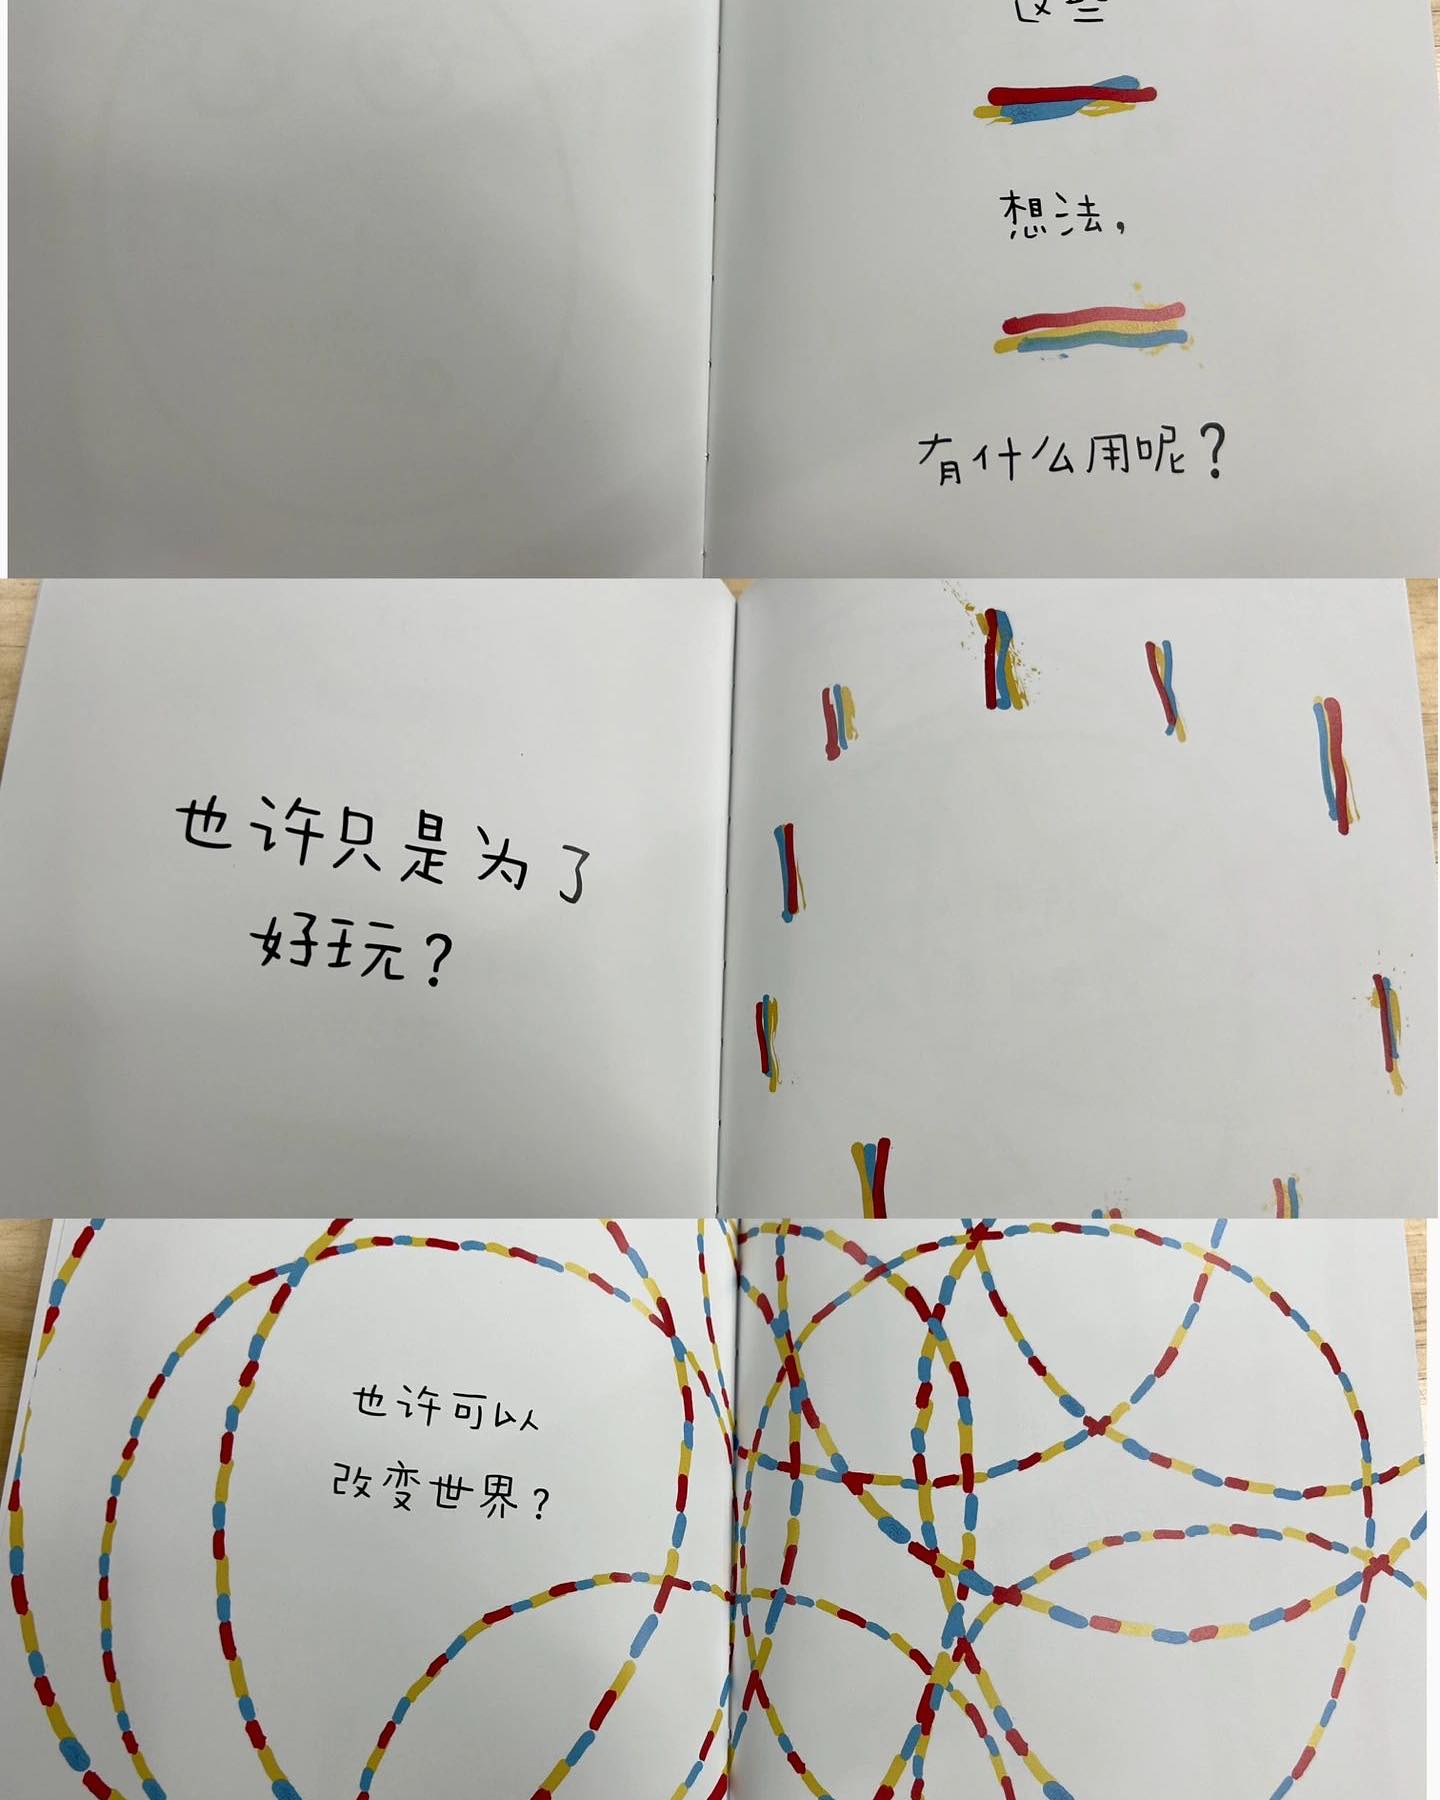 这些
想法，
有什么用呢？
也许只是为了
好玩？
也许可以
改变世界？